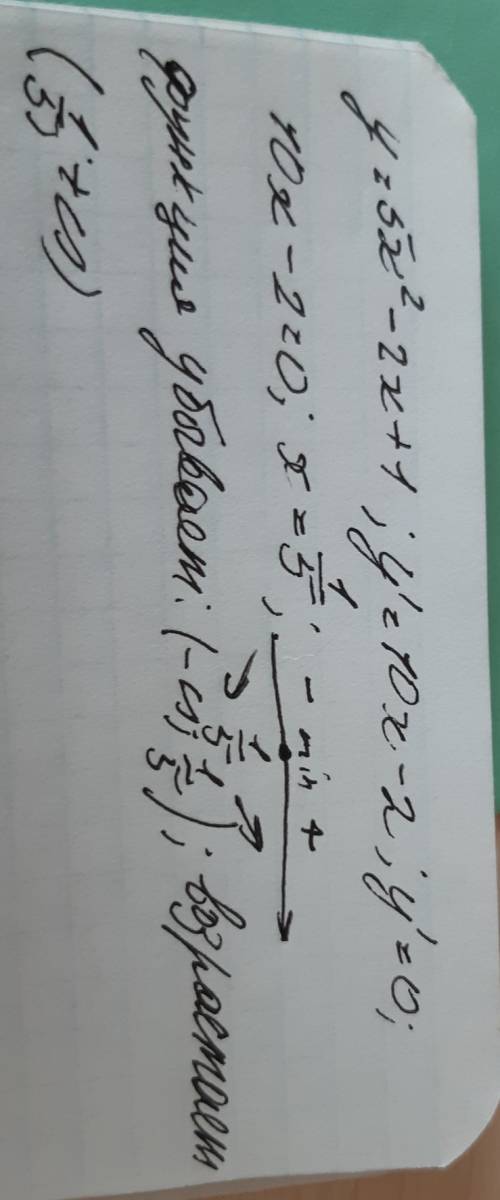 y = 5x² - 2x + 1; y' = 10x - 2; y' = 0;
10x - 2 = 0; x = 1/5; - min +
1/5
функция убывает: (-∞; 1/5); возрастает
(1/5; +∞)